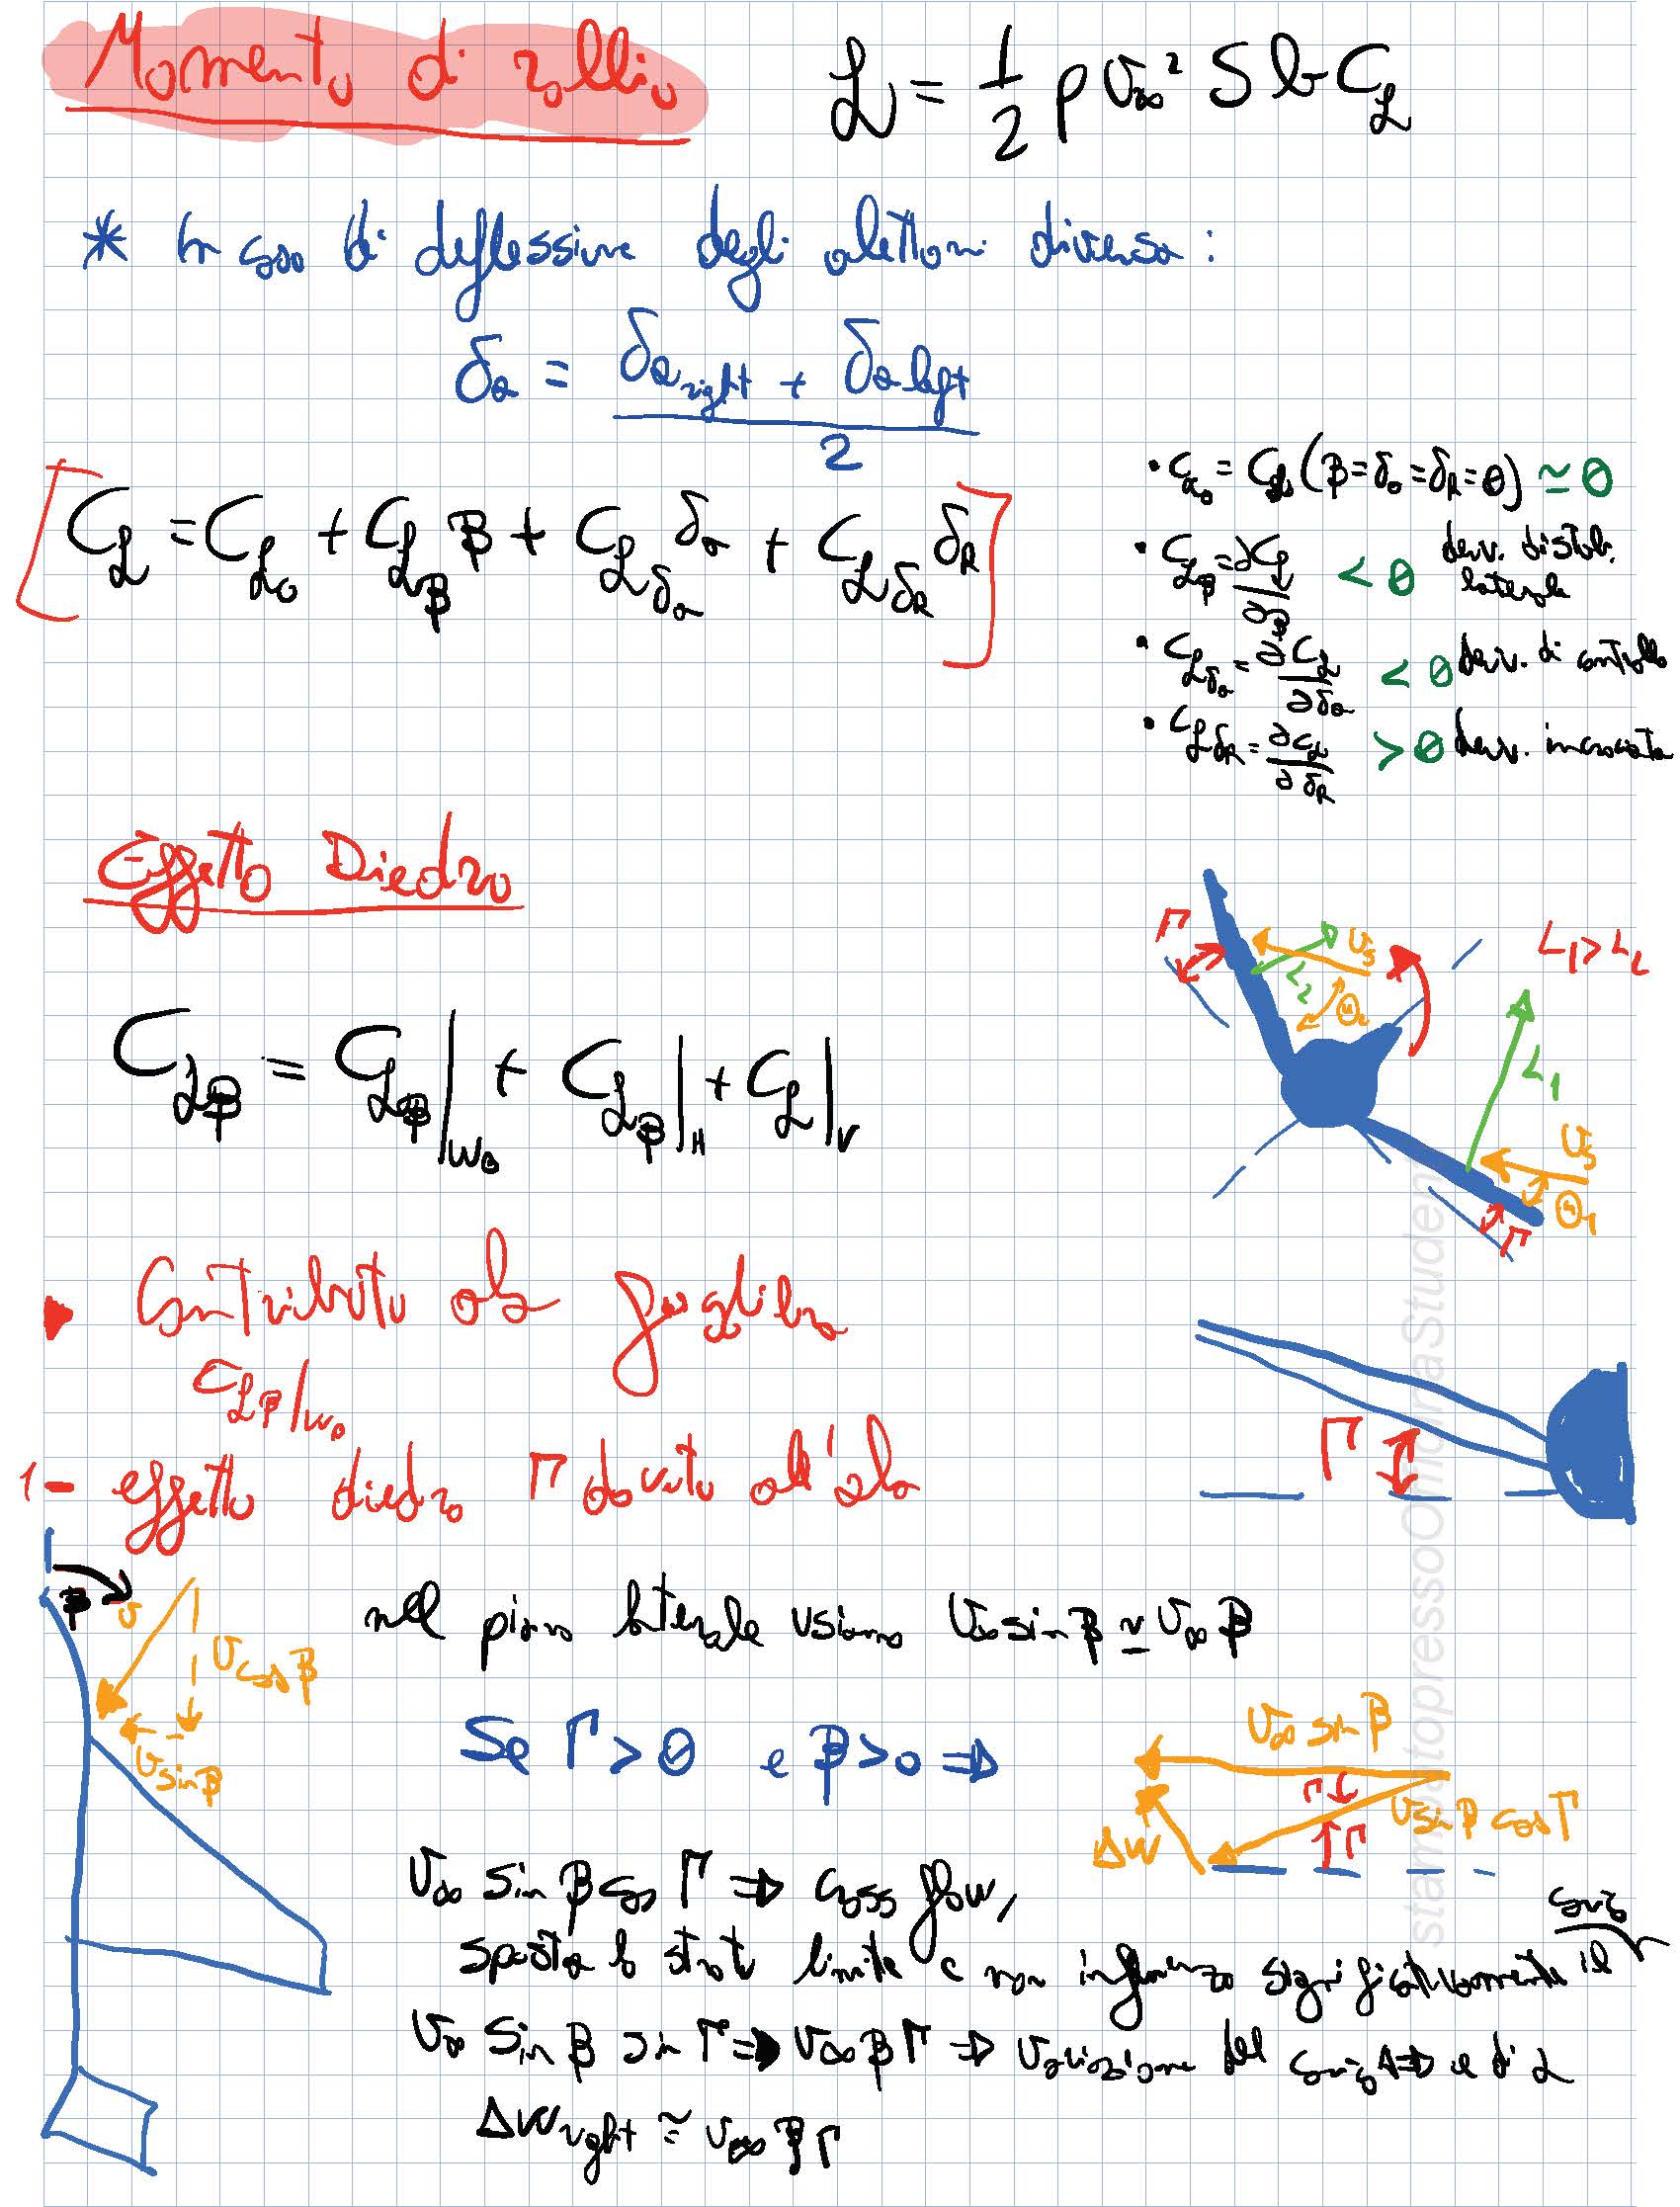 Momento di rollio
ℒ = 1/2 ρ v∞² S b C_ℒ
* In caso di deflessione degli alettoni diversa:
δa = (δa right + δa left) / 2
[C_ℒ = C_ℒ0 + C_ℒβ β + C_ℒδa δa + C_ℒδR δR]
• C_ℒ0 = C_ℒ (β = δa = δR = 0) ≃ 0
• C_ℒβ = ∂C_ℒ/∂β < 0 deriv. di stab. laterale
• C_ℒδa = ∂C_ℒ/∂δa < 0 deriv. di controllo
• C_ℒδR = ∂C_ℒ/∂δR > 0 deriv. incrociata
Effetto Diedro
C_ℒβ = C_ℒβ|WB + C_ℒβ|H + C_ℒ|V
Γ
L2
vs
θ2
L1 > L2
L1
vs
θ1
Γ
Contributo ala fusoliera
C_ℒβ|WB
1- effetto diedro Γ dovuto all'ala
Γ
β
v
v cos β
v sin β
nel piano laterale usiamo v∞ sin β ≃ v∞ β
Se Γ > 0 e β > 0 ⇒
v∞ sin β
Γ
v sin β cos Γ
Δw
Γ
v∞ sin β cos Γ ⇒ cross flow,
sposta lo strato limite e non influenza significativamente il carico
v∞ sin β sin Γ ⇒ v∞ β Γ ⇒ variazione del carico ⇒ e di α
Δw right ≃ v∞ β Γ
stampatopressoOfficinaStudenti